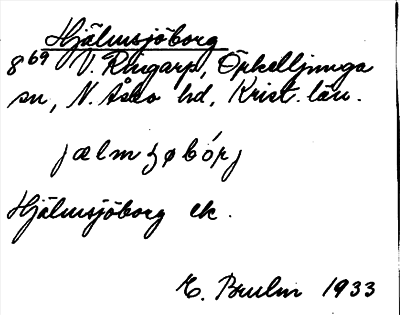 Hjälmsjöborg
8⁶⁹ V. Ringarp, Örkelljunga
sn, N. Åsbo hd, Krist. län.
jælmʒøbórj
Hjälmsjöborg ek.
E. Bruhn 1933